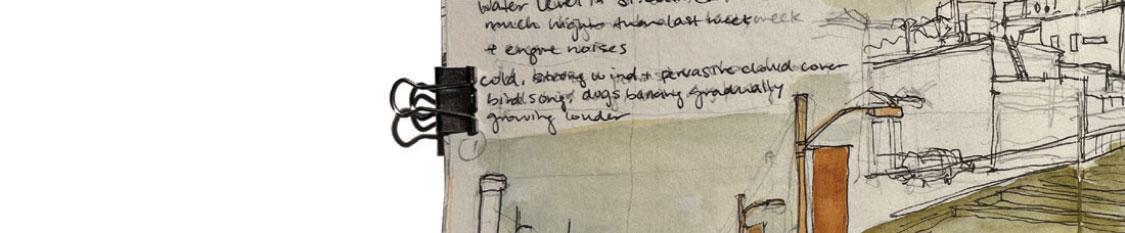 water level in
much higher than last week
+ engine noises
cold, strong wind + pervasive cloud cover
birdsong, dogs barking gradually
growing louder